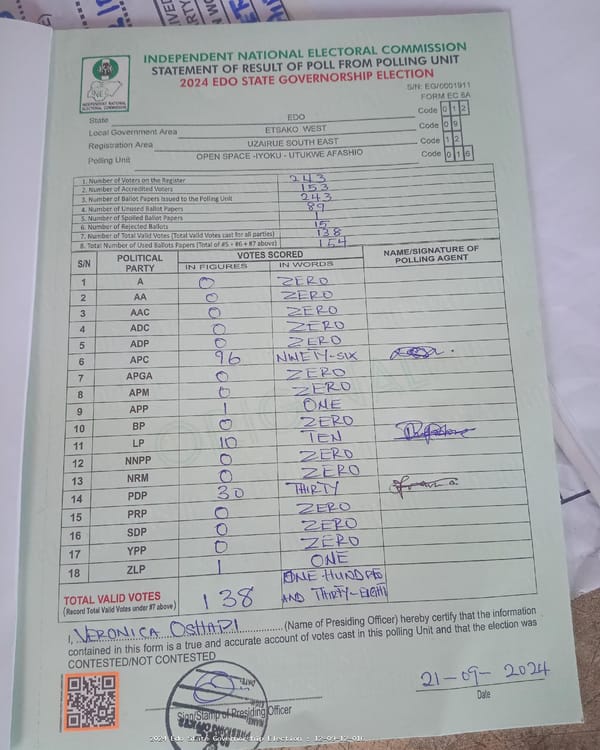 INDEPENDENT NATIONAL ELECTORAL COMMISSION
STATEMENT OF RESULT OF POLL FROM POLLING UNIT
2024 EDO STATE GOVERNORSHIP ELECTION
S/N: EG/0001911
FORM EC 8A
INDEPENDENT NATIONAL ELECTORAL COMMISSION
State EDO Code 0 1 2
Local Government Area ETSAKO WEST Code 0 9
Registration Area UZAIRUE SOUTH EAST Code 1 2
Polling Unit OPEN SPACE -IYOKU - UTUKWE AFASHIO Code 0 1 6
1. Number of Voters on the Register 243
2. Number of Accredited Voters 153
3. Number of Ballot Papers Issued to the Polling Unit 243
4. Number of Unused Ballot Papers 89
5. Number of Spoiled Ballot Papers 1
6. Number of Rejected Ballots 15
7. Number of Total Valid Votes (Total Valid Votes cast for all parties) 138
8. Total Number of Used Ballots Papers (Total of #5 + #6 + #7 above) 154
S/N POLITICAL PARTY VOTES SCORED NAME/SIGNATURE OF POLLING AGENT
IN FIGURES IN WORDS
1 A 0 ZERO
2 AA 0 ZERO
3 AAC 0 ZERO
4 ADC 0 ZERO
5 ADP 0 ZERO
6 APC 96 NINETY-SIX
7 APGA 0 ZERO
8 APM 0 ZERO
9 APP 1 ONE
10 BP 0 ZERO
11 LP 10 TEN
12 NNPP 0 ZERO
13 NRM 0 ZERO
14 PDP 30 THIRTY
15 PRP 0 ZERO
16 SDP 0 ZERO
17 YPP 0 ZERO
18 ZLP 1 ONE
TOTAL VALID VOTES 138 ONE HUNDRED
(Record Total Valid Votes under #7 above) AND THIRTY-EIGHT
I, VERONICA OSHARI (Name of Presiding Officer) hereby certify that the information
contained in this form is a true and accurate account of votes cast in this polling Unit and that the election was
CONTESTED/NOT CONTESTED
21-09-2024
Sign/Stamp of Presiding Officer Date
2024 Edo State Governorship Election